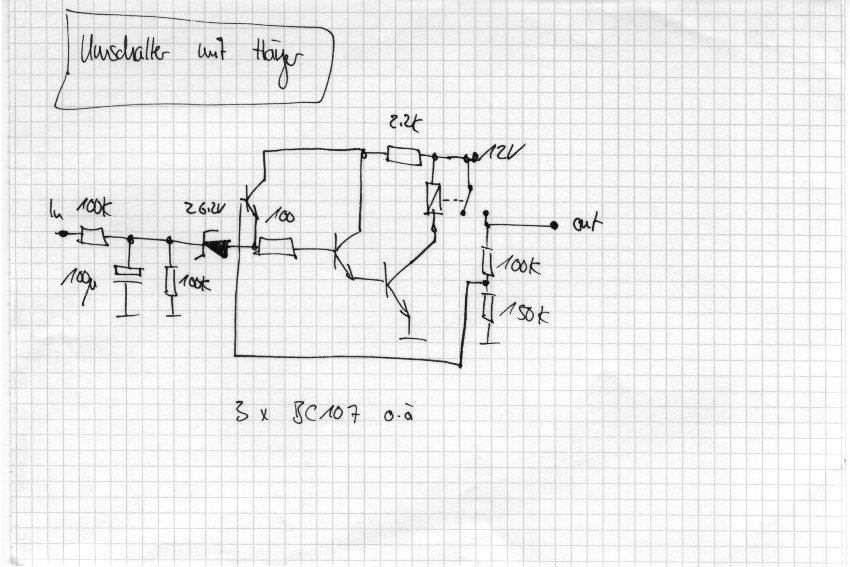 Umschalter mit Hänger
2.2K
12V
In
100K
Z 6.2V
100
out
100µ
100K
100K
150K
3 x BC107 o.ä